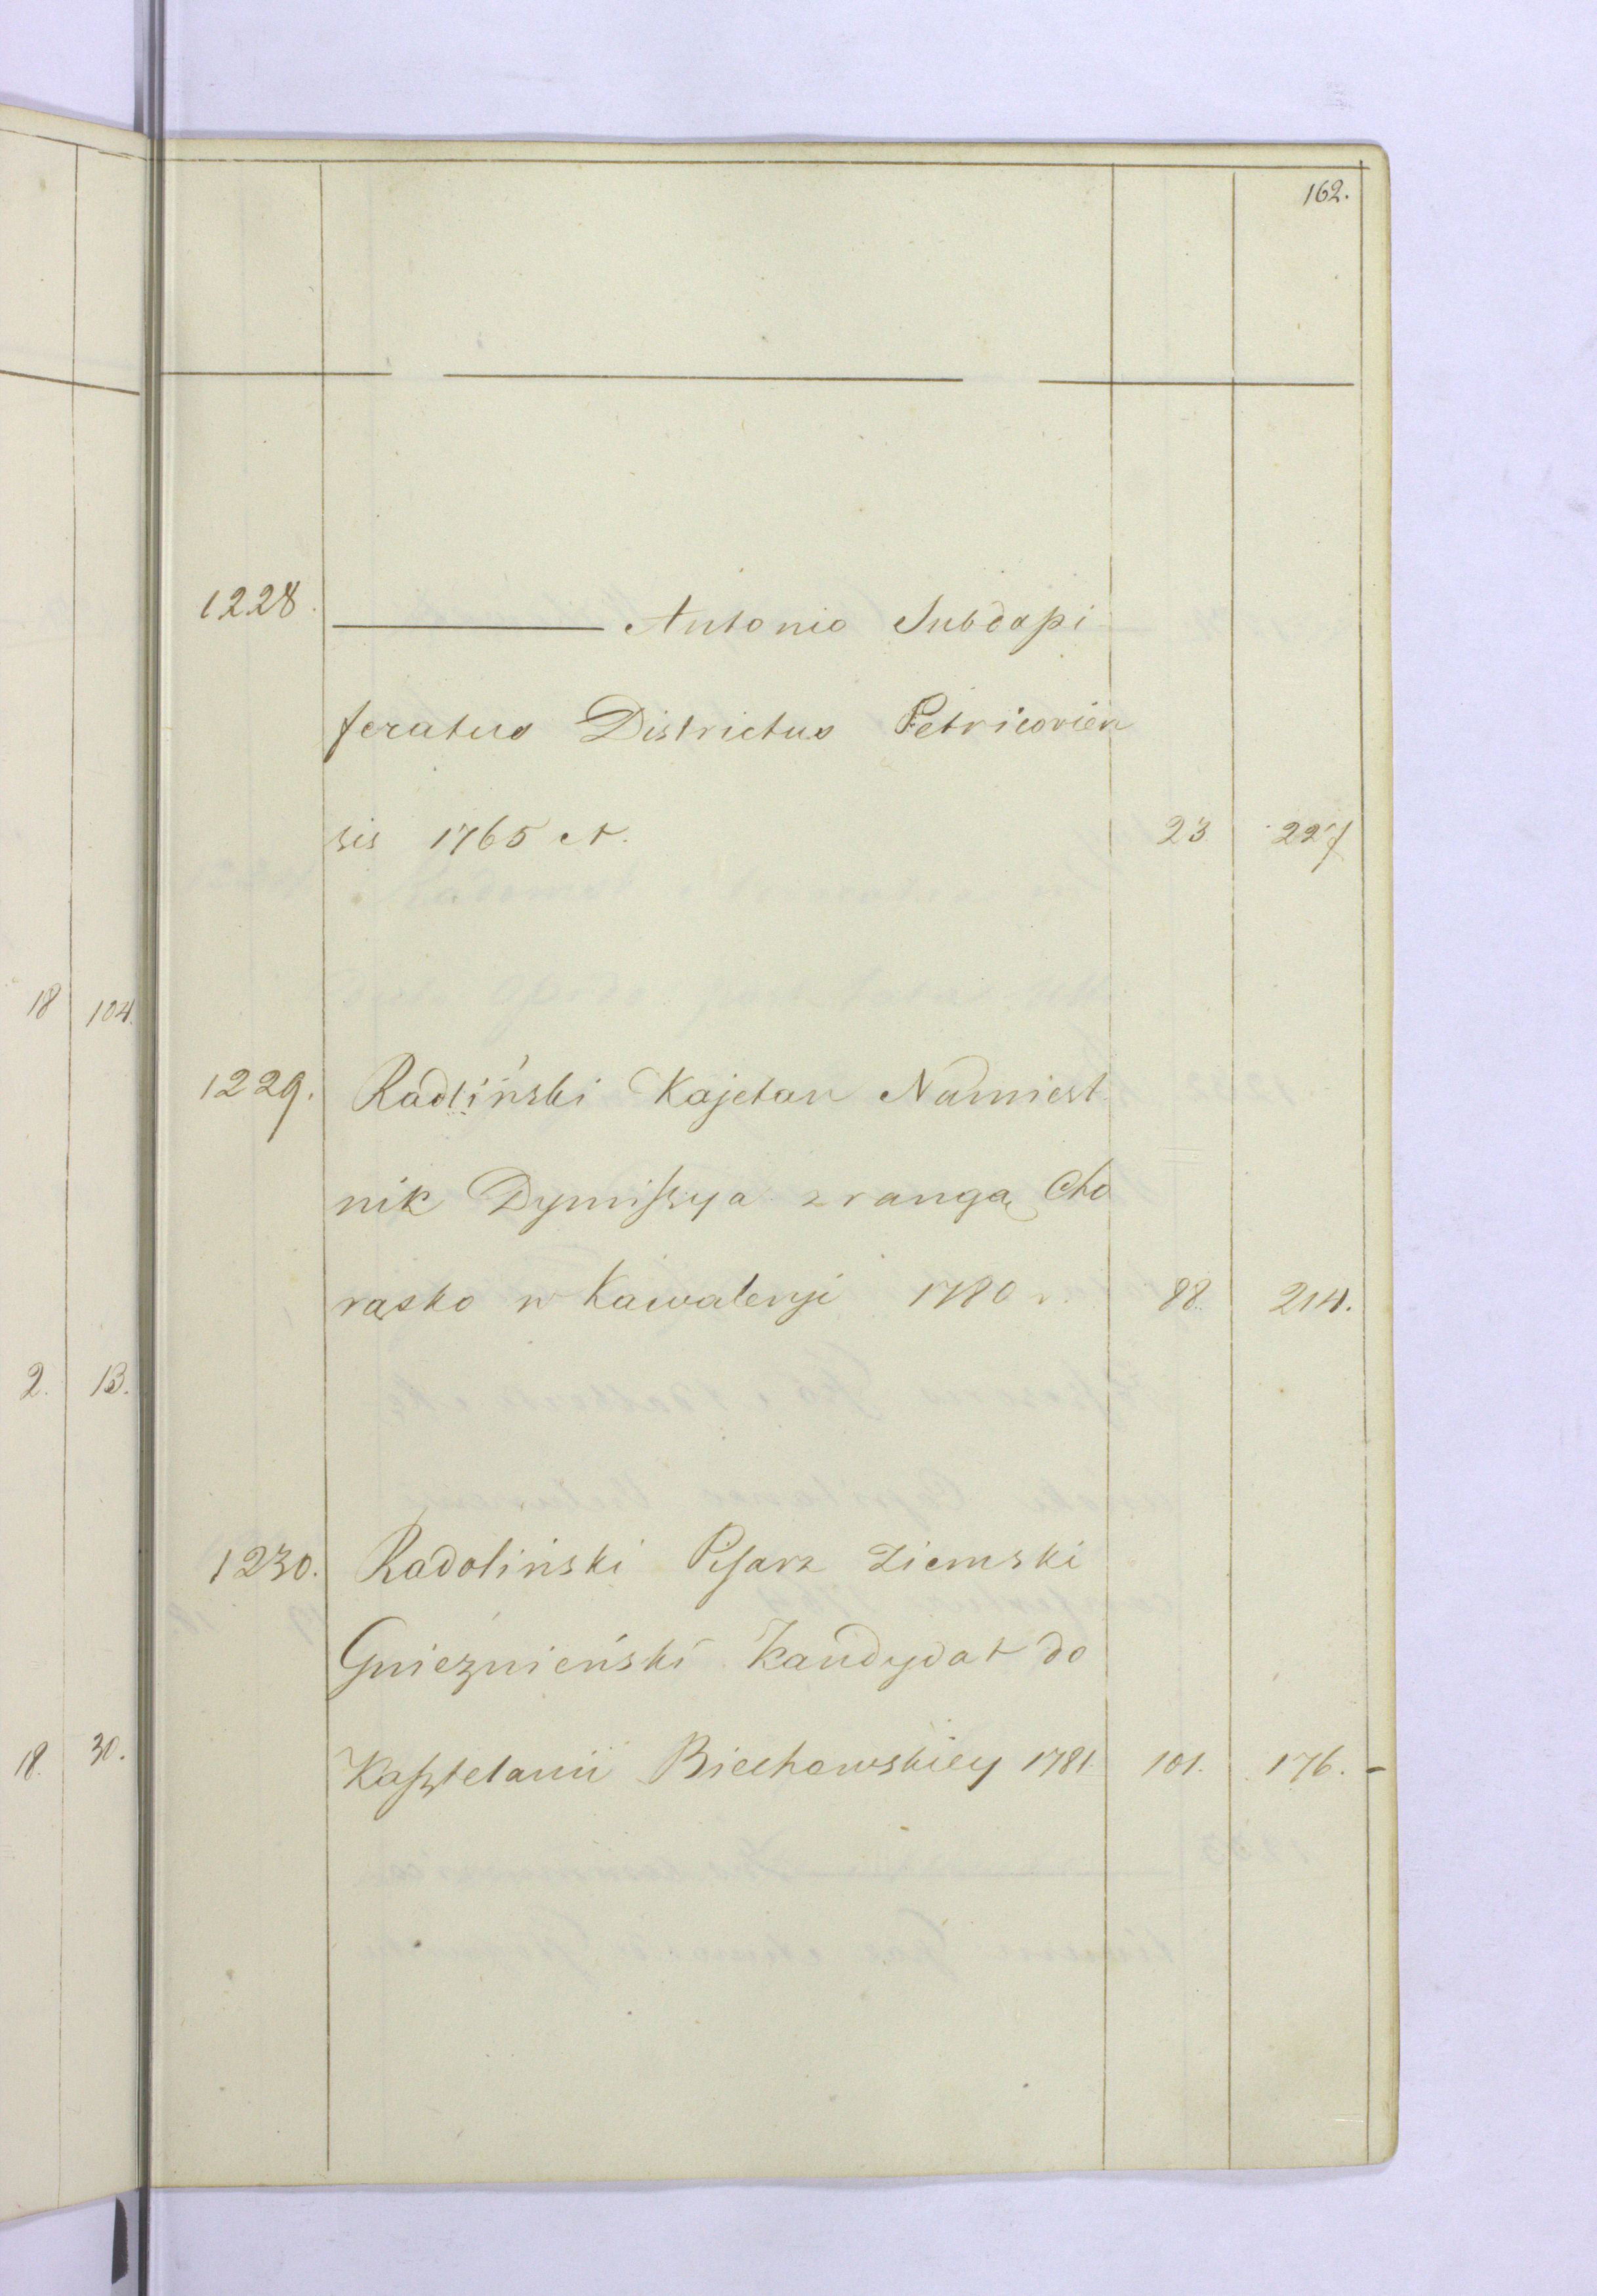 162.
1228. ——— Antonio Subdapi
feratus Districtus Petricovien
sis 1765 A. 23. 227
18 104.
1229. Radliński Kajetan Namiest
nik Dymissya z rangą Cho
rąsko w Kawaleryi 1780 r. 88. 214.
2. 13.
1230. Radoliński Pisarz Ziemski
Gnieznieński Kandydat do
18. 30.
Kasztelanii Biechowskiey 1781. 101. 176. -